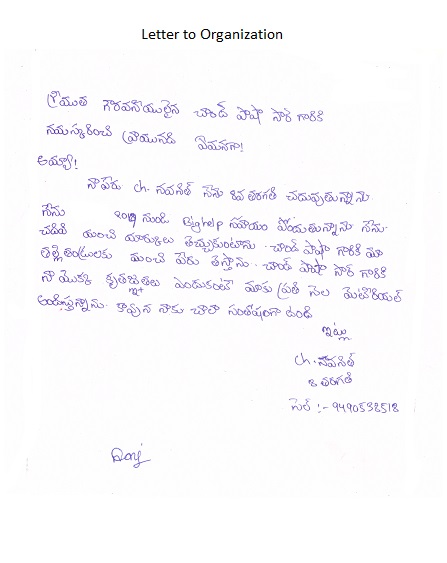 Letter to Organization
శ్రీయుత గౌరవనీయులైన చాంద్ పాషా సార్ గారికి
నమస్కరించి వ్రాయునది ఏమనగా!
అయ్యా!
నాపేరు ch. నవనీత్ నేను 8వ తరగతి చదువుతున్నాను.
నేను 2019 నుండి Bighelp సహాయం పొందుతున్నాను నేను
చదివి మంచి మార్కులు తెచ్చుకుంటాను. చాంద్ పాషా గారికి మా
తల్లితండ్రులకు మంచి పేరు తెస్తాను. చాంద్ పాషా సార్ గారికి
నా యొక్క కృతజ్ఞతలు ఎందుకంటే మాకు ప్రతి నెల మెటీరియల్
అందిస్తున్నారు. కావున నాకు చాలా సంతోషంగా ఉంది
ఇట్లు
ch. నవనీత్
8 తరగతి
సెల్ :- 9490538518